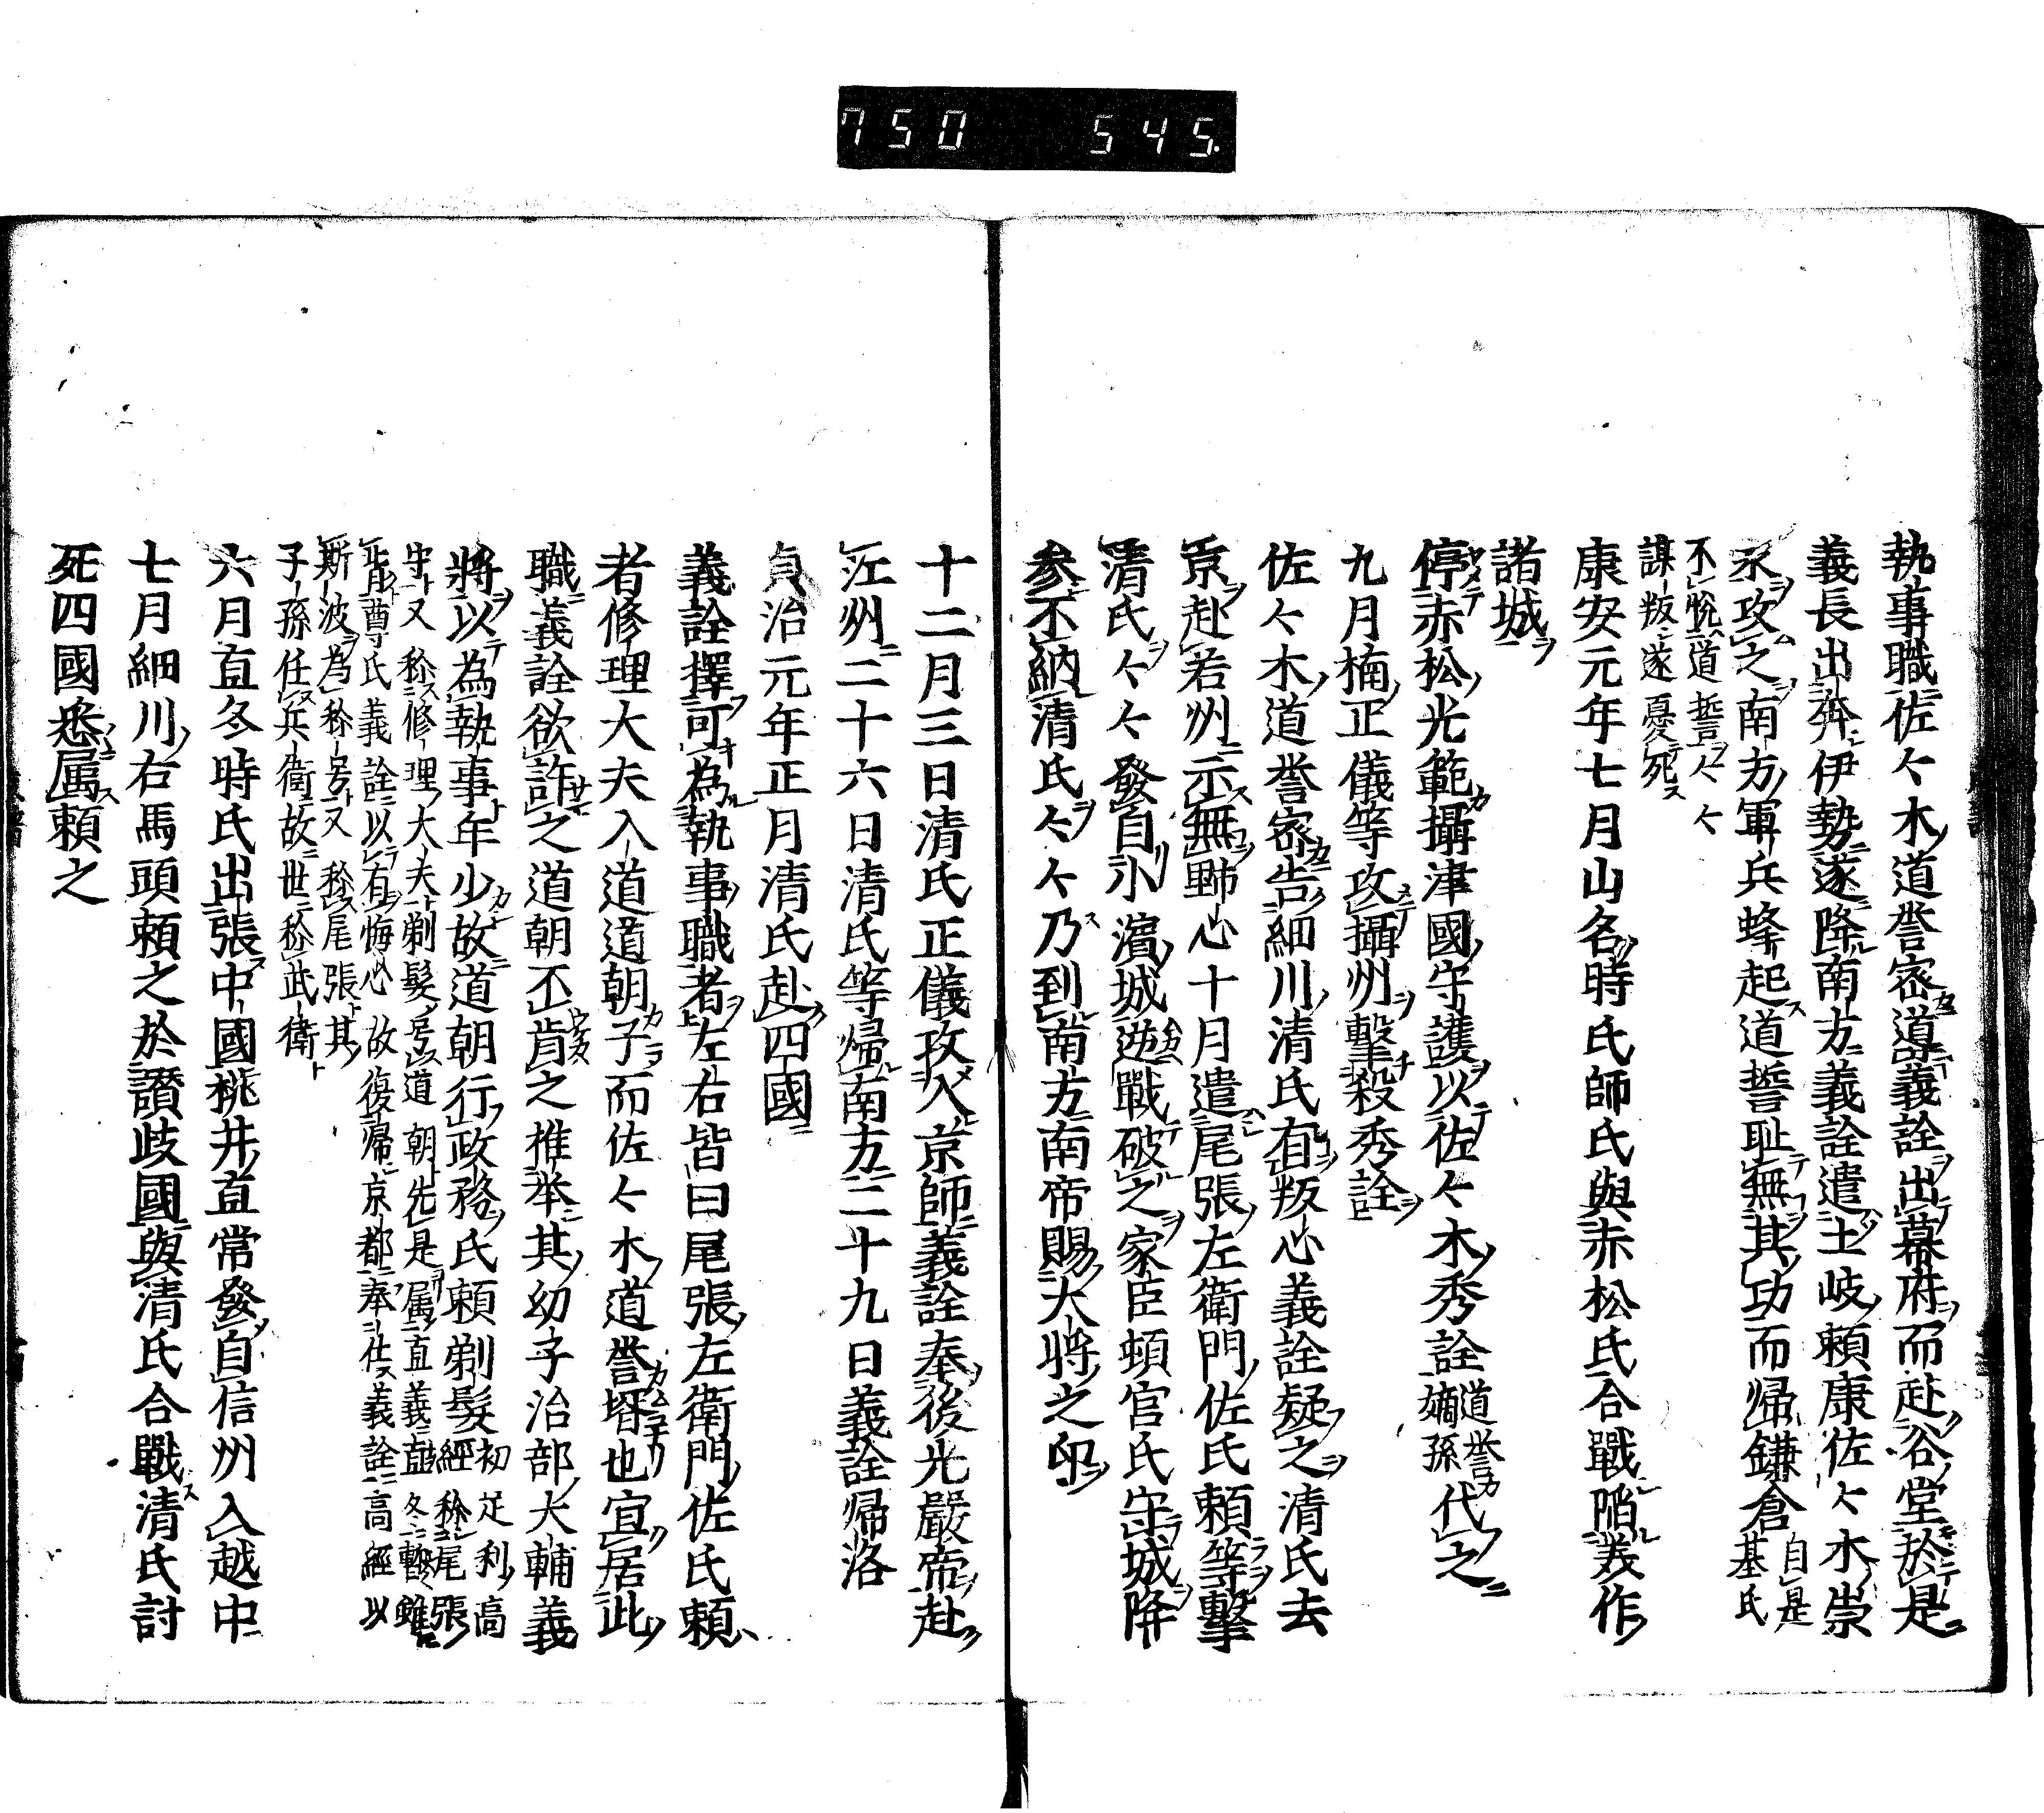 750 545
執事職佐々木道誉密導義詮出幕府而赴谷堂於是
義長出奔伊勢遂降南方義詮遣土岐頼康佐々木崇
永攻之南方軍兵蜂起道誓耻無其功而帰鎌倉自是基氏
不悦道誓々々
謀叛遂憂死
康安元年七月山名時氏師氏與赤松氏合戰陥美作
諸城
停赤松光範攝津國守護以佐々木秀詮道誉嫡孫代之
九月楠正儀等攻攝州擊殺秀詮
佐々木道誉密告細川清氏有叛心義詮疑之清氏去
京赴若州示無野心十月遣尾張左衛門佐氏頼等擊
清氏々々發自小濱城逆戰破之家臣頓宮氏守城降
参不納清氏々々乃到南方南帝賜大将之印
十二月三日清氏正儀攻入京師義詮奉後光嚴帝赴
江州二十六日清氏等帰南方二十九日義詮帰洛
貞治元年正月清氏赴四國
義詮擇可為執事職者左右皆曰尾張左衛門佐氏頼
者修理大夫入道道朝子而佐々木道誉壻也宜居此
職義詮欲許之道朝不肯之推举其幼子治部大輔義
將以為執事年少故道朝行政務氏頼剃髮初足利高經称尾張
守又称修理大夫剃髮号道朝先是属直義直冬暫雖
背尊氏義詮以有悔心故復帰京都奉仕義詮高經以
斯波為称号又称尾張其
子孫任兵衛故世称武衛
六月直冬時氏出張中國桃井直常發自信州入越中
七月細川右馬頭頼之於讃歧國與清氏合戰清氏討
死四國悉属頼之